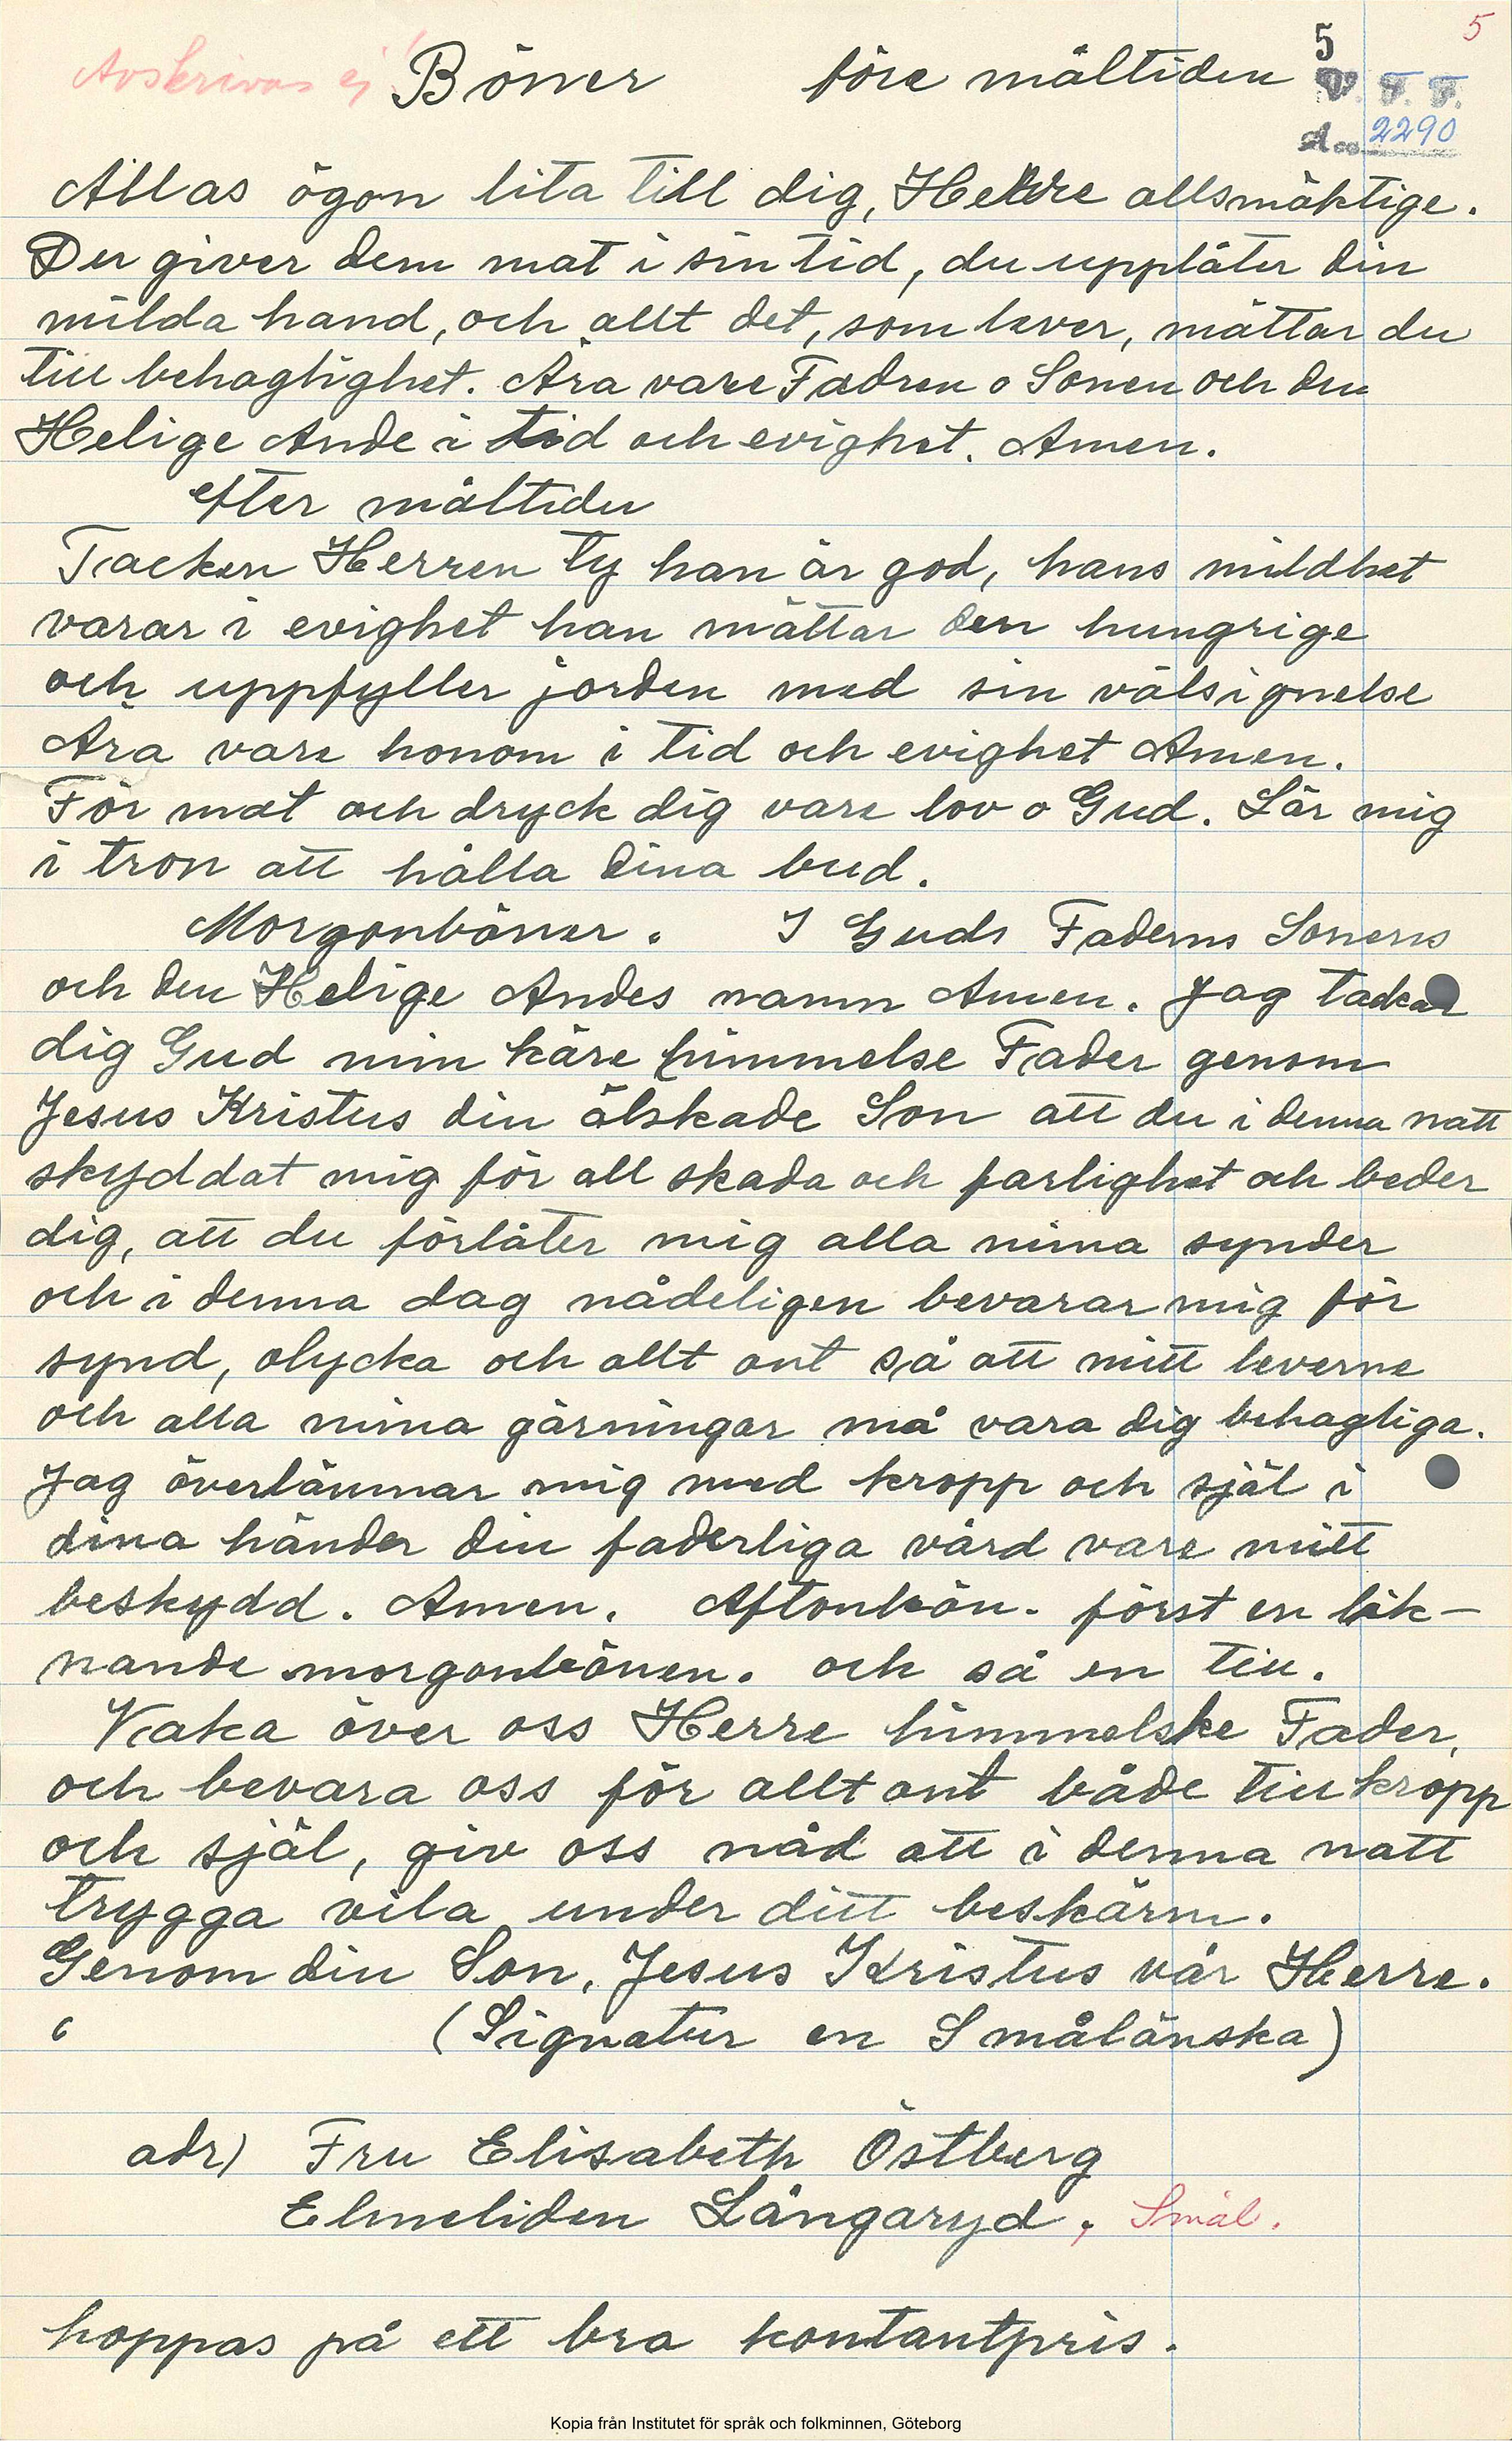 5
Avskrivas ej! Böner före måltiden 5
V. F. F.
Acc. 2290
Allas ögon lita till dig, Herre allsmäktige.
Du giver dem mat i sin tid, du upplåter din
milda hand, och allt det, som lever, mättar du
till behaglighet. Ära vare Fadren o Sonen och den
Helige Ande i tid och evighet. Amen.
efter måltiden
Tacken Herren ty han är god, hans mildhet
varar i evighet han mättar den hungrige
och uppfyller jorden med sin välsignelse
Ära vare honom i tid och evighet Amen.
För mat och dryck dig vare lov o Gud. Lär mig
i tron att hålla dina bud.
Morgonböner. I Guds Faderns Sonens
och den Helige Andes namn Amen. Jag tackar
dig Gud min käre himmelse Fader genom
Jesus Kristus din älskade Son att du i denna natt
skyddat mig för all skada och farlighet och beder
dig, att du förlåter mig alla mina synder
och i denna dag nådeligen bevarar mig för
synd, olycka och allt ont så att mitt leverne
och alla mina gärningar må vara dig behagliga.
Jag överlämnar mig med kropp och själ i
dina händer din faderliga vård vare mitt
beskydd. Amen. Aftonbön. först en lik-
nande morgonbönen. och så en till.
Vaka över oss Herre himmelske Fader,
och bevara oss för allt ont både till kropp
och själ, giv oss nåd att i denna natt
trygga vila under ditt beskärm.
Genom din Son, Jesus Kristus vår Herre.
(Signatur en Smålänska)
adr) Fru Elisabeth Östberg
Elmeliden Långaryd, Smål.
hoppas på ett bra kontantpris.
Kopia från Institutet för språk och folkminnen, Göteborg